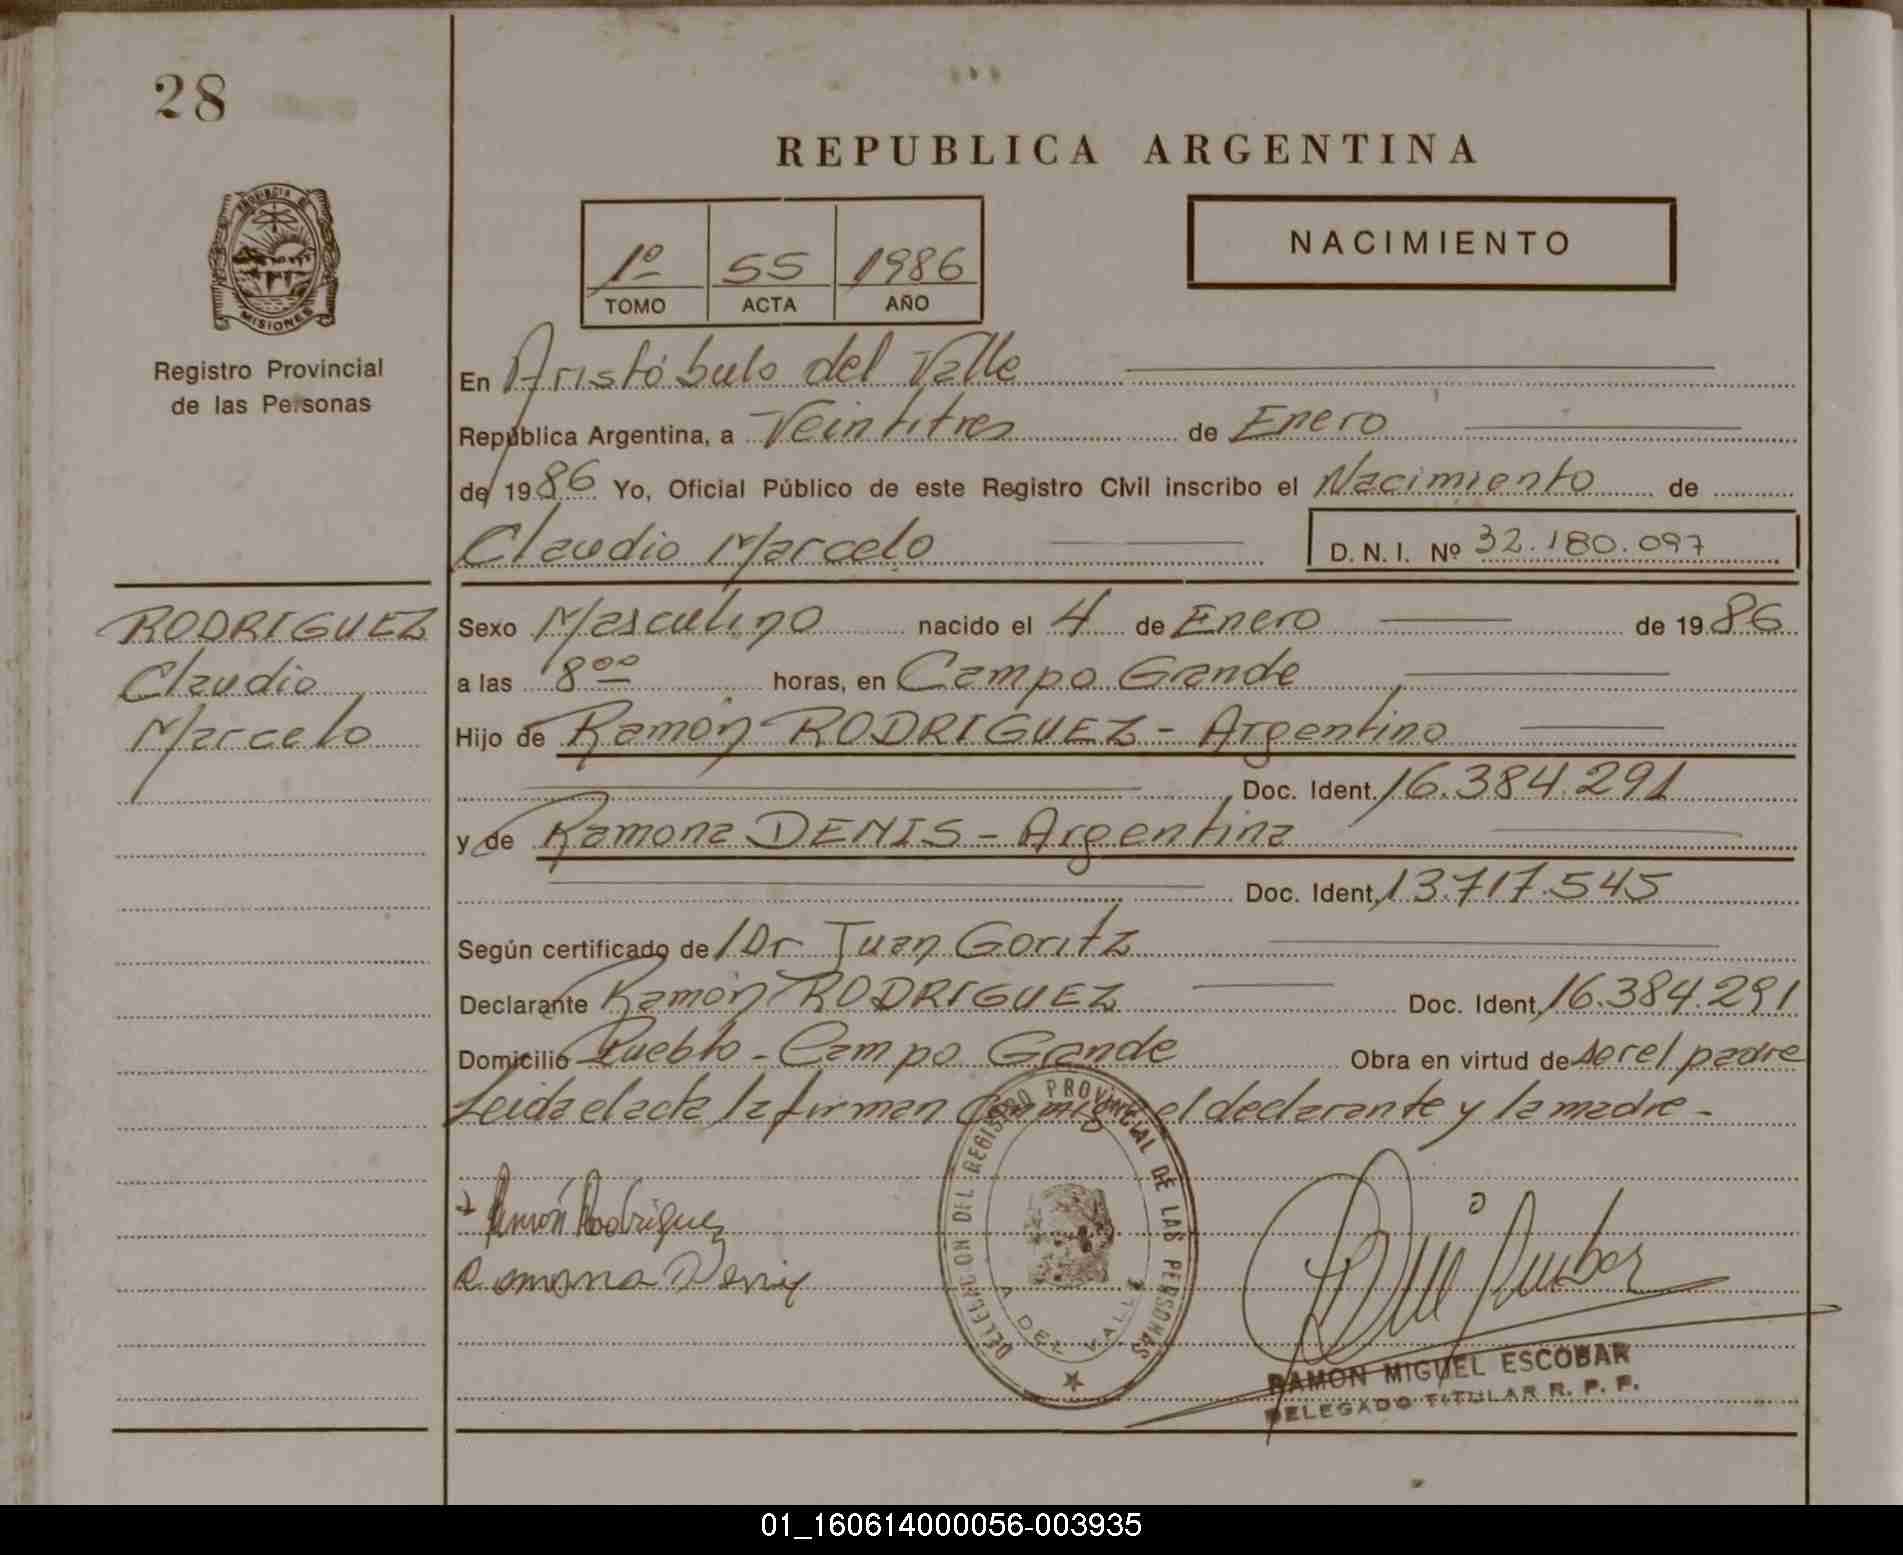 28
PROVINCIA DE
MISIONES
Registro Provincial
de las Personas
REPUBLICA ARGENTINA
1º 55 1986
TOMO ACTA AÑO
NACIMIENTO
En Aristóbulo del Valle
República Argentina, a Veintitres de Enero
de 1986 Yo, Oficial Público de este Registro Civil inscribo el Nacimiento de
Claudio Marcelo D.N.I. Nº 32.180.097
RODRIGUEZ
Claudio
Marcelo
Sexo Masculino nacido el 4 de Enero de 1986
a las 8 00 horas, en Campo Grande
Hijo de Ramón RODRIGUEZ - Argentino
Doc. Ident. 16.384.291
y de Ramona DENIS - Argentina
Doc. Ident. 13.717.545
Según certificado de Dr Juan Goritz
Declarante Ramón RODRIGUEZ Doc. Ident. 16.384.291
Domicilio Pueblo - Campo Grande Obra en virtud de ser el padre
Leida el acta la firman conmigo el declarante y la madre -
Ramón Rodriguez
Ramona Denis
DELEGACION DEL REGISTRO PROVINCIAL DE LAS PERSONAS
A DEL VALLE
RAMON MIGUEL ESCOBAR
DELEGADO TITULAR R. P. P.
01_160614000056-003935